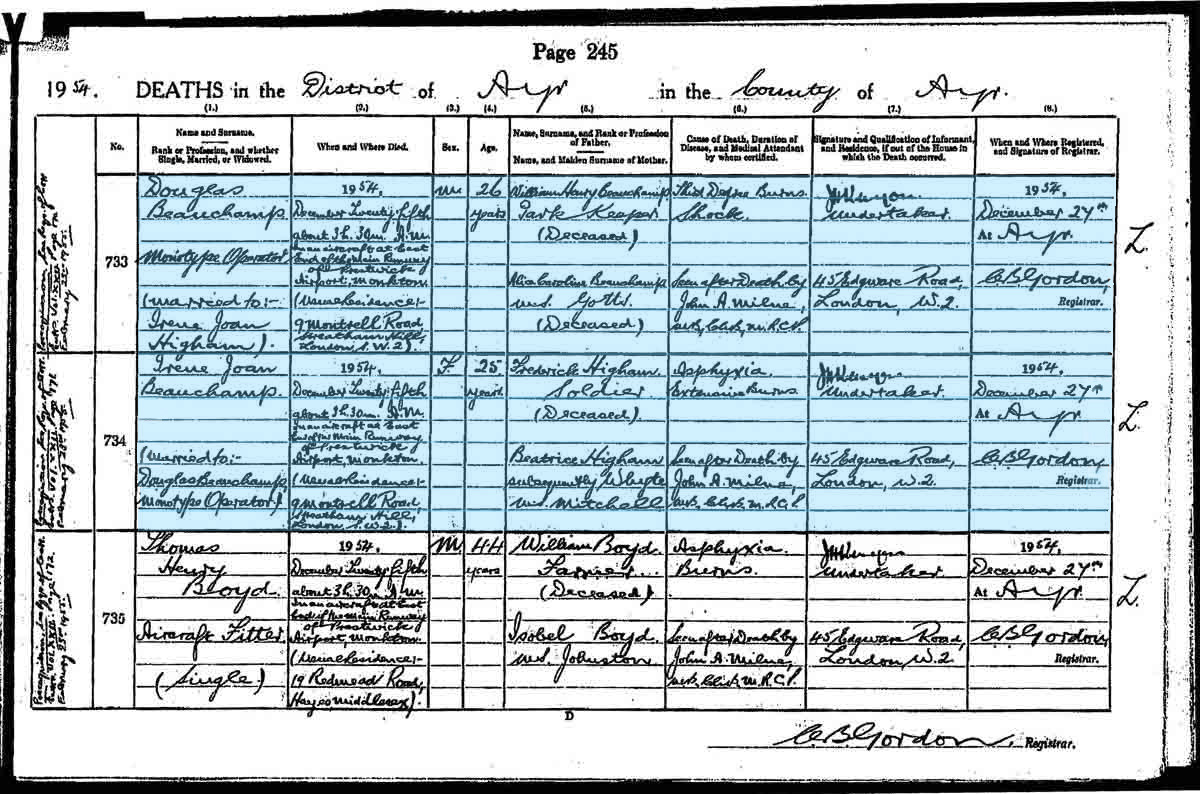 Page 245
1954. DEATHS in the District of Ayr in the County of Ayr.
(1.) (2.) (3.) (4.) (5.) (6.) (7.) (8.)
No.
Name and Surname.
Rank or Profession, and whether
Single, Married, or Widowed.
When and Where Died.
Sex.
Age.
Name, Surname, and Rank or Profession
of Father.
Name, and Maiden Surname of Mother.
Cause of Death, Duration of
Disease, and Medical Attendant
by whom certified.
Signature and Qualification of Informant,
and Residence, if out of the House in
which the Death occurred.
When and Where Registered,
and Signature of Registrar.
733
Douglas
Beauchamp
Monotype Operator
(married to:-
Irene Joan
Higham).
1954,
December Twenty fifth
about 3h. 30m. A.M.
In an aircraft at East
End of the Main Runway
of Prestwick
Airport, Monkton
(Usual residence:-
9 Montrell Road,
Streatham Hill,
London, S.W.2).
M
26
years
William Henry Beauchamp
Park Keeper
(Deceased)
Beauchamp
m.s. Gotts.
(Deceased)
Third Degree Burns
Shock.
Seen after Death by
John A. Milne,
Undertaker.
45 Edgware Road,
London, W.2.
1954,
December 27th
At Ayr
C.B. Gordon,
Registrar.
L.
734
Irene Joan
Beauchamp
(Married to:-
Douglas Beauchamp
Monotype Operator)
1954.
December Twenty fifth
about 3h. 30m. A.M.
In an aircraft at East
End of the Main Runway
of Prestwick
Airport, Monkton.
(Usual Residence:-
9 Montrell Road,
Streatham Hill,
London, S.W.2.).
F.
25
years
Frederick Higham
Soldier
(Deceased)
Beatrice Higham
subsequently Whyte
m.s. Mitchell
Asphyxia
Extensive Burns
Seen after Death by
John A. Milne,
Undertaker.
45 Edgware Road,
London, W.2
1954
December 27th
At Ayr
C.B. Gordon,
Registrar.
L.
735
Thomas
Henry
Boyd
Aircraft Fitter.
(Single)
1954.
December Twenty fifth
about 3h. 30m. A.M.
In an aircraft at East
End of the Main Runway
of Prestwick
Airport, Monkton
(Usual Residence:-
19 Redmead Road,
Hayes, Middlesex).
M.
44
years
William Boyd
(Deceased)
Isobel Boyd
m.s. Johnston
Asphyxia
Burns.
Seen after Death by
John A. Milne,
Undertaker.
45 Edgware Road,
London, W.2
1954,
December 27th
At Ayr
C.B. Gordon,
Registrar.
L.
D
C.B. Gordon. Registrar.